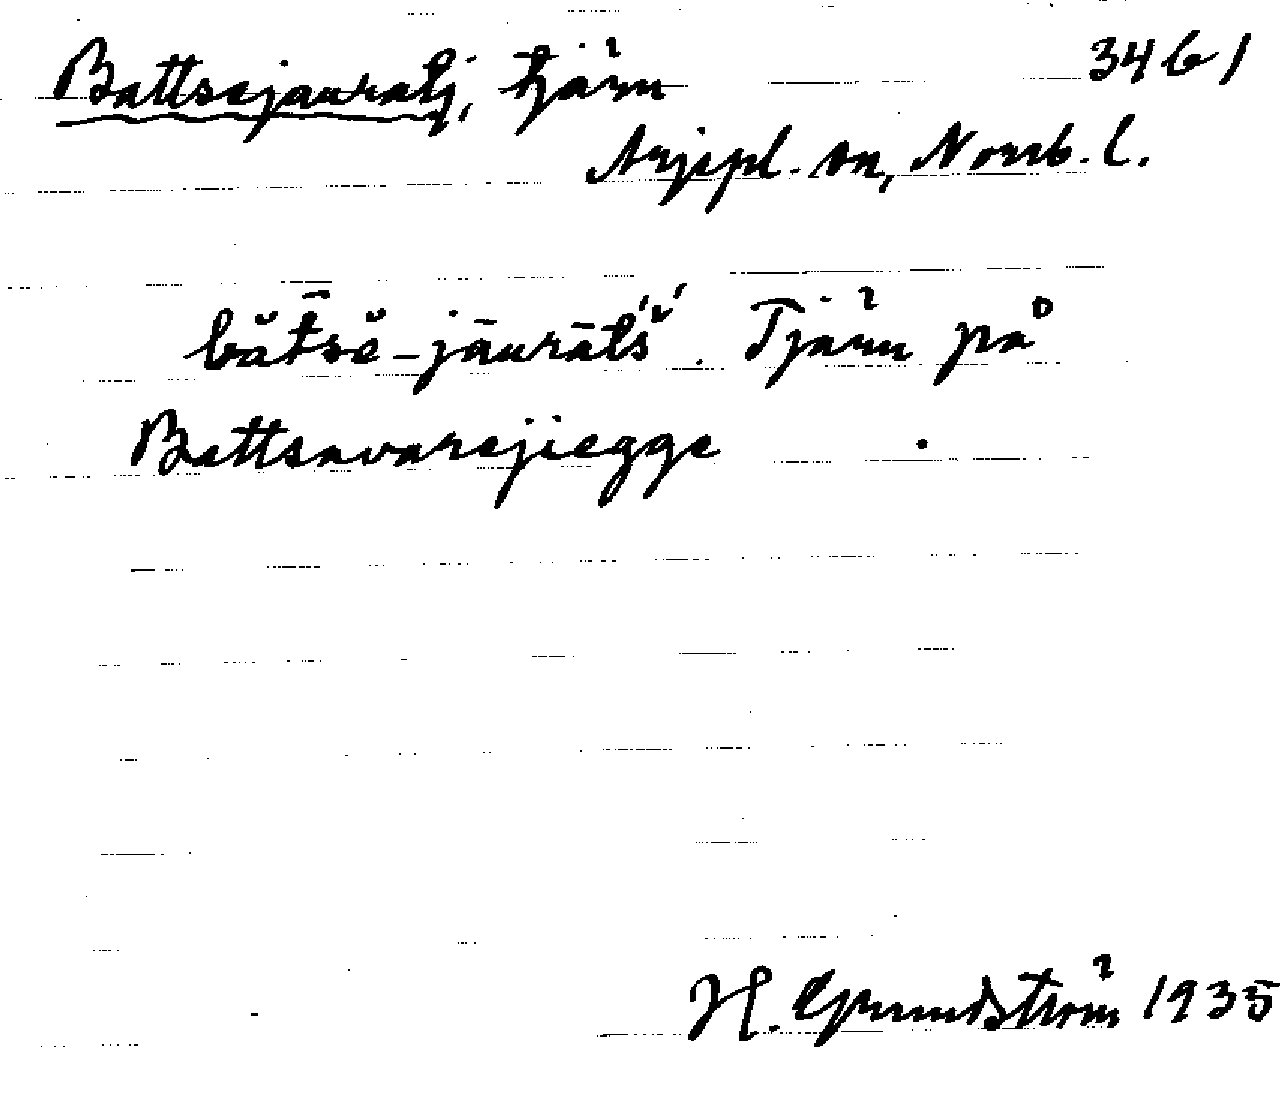 Battsejauratj, tjärn 3461
Arjepl. sn, Norrb. l.
bătsĕ-jāurāts̆'. Tjärn på
Battsavarejiegge .
H. Grundström 1935